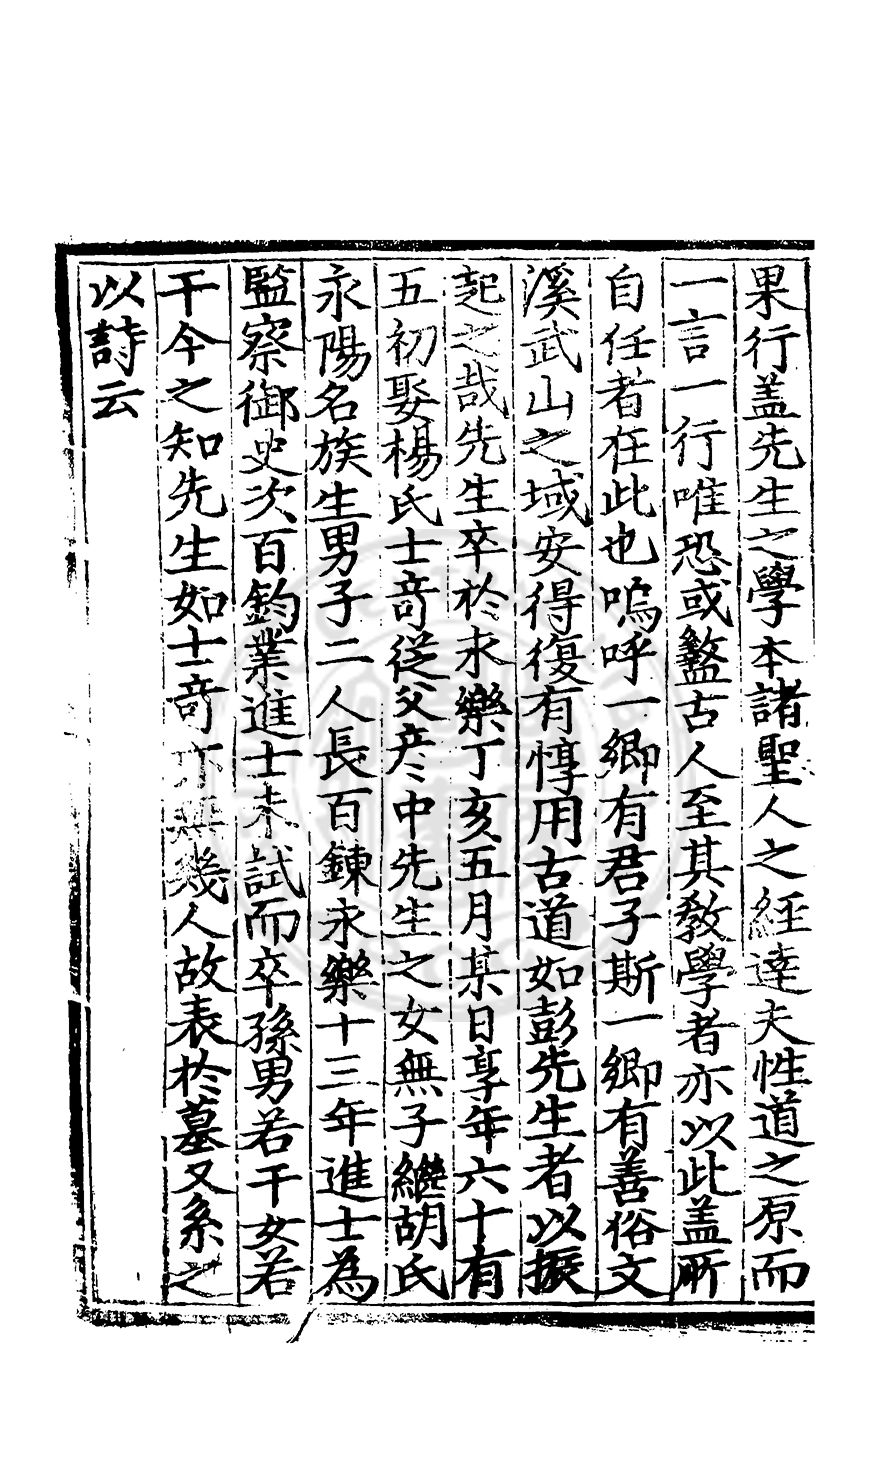 果行盖先生之學本諸聖人之經達夫性道之原而
一言一行唯恐或盭古人至其敎學者亦以此盖所
自任者在此也嗚呼一鄉有君子斯一鄉有善俗文
溪武山之域安得復有惇用古道如彭先生者以振
起之哉先生卒於永樂丁亥五月某日享年六十有
五初娶楊氏士奇從父彦中先生之女無子繼胡氏
永陽名族生男子二人長百鍊永樂十三年進士為
監察御史次百鈞業進士未試而卒孫男若干女若
干今之知先生如士奇亦無幾人故表於墓又系之
以詩云